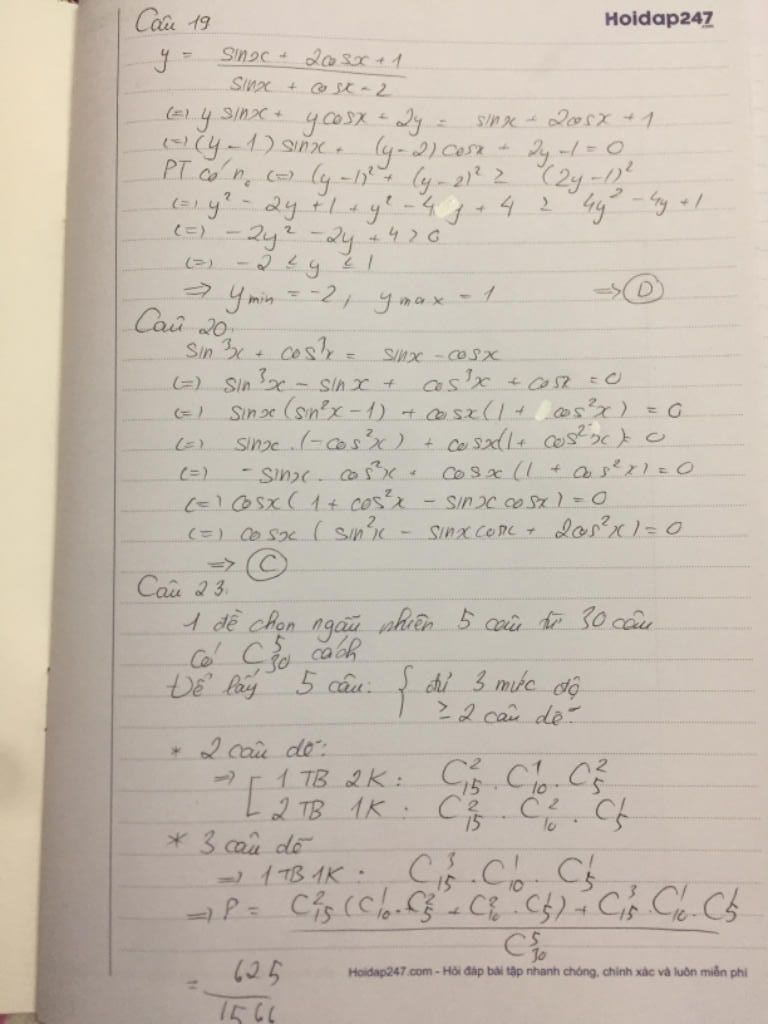 Câu 19
Hoidap247
y = (sinx + 2cosx + 1)/(sinx + cosx - 2)
(=) y sinx + ycosx + 2y = sinx + 2cosx + 1
(=) (y-1) sinx + (y-2) cosx + 2y - 1 = 0
PT có n₀ (=) (y-1)² + (y-2)² ≥ (2y-1)²
(=) y² - 2y + 1 + y² - 4y + 4 ≥ 4y² - 4y + 1
(=) -2y² - 2y + 4 ≥ 0
(=) -2 ≤ y ≤ 1
=> y min = -2, y max = 1 => D
Câu 20.
sin³x + cos³x = sinx - cosx
(=) sin³x - sinx + cos³x + cosx = 0
(=) sinx (sin²x - 1) + cosx (1 + cos²x) = 0
(=) sinx . (-cos²x) + cosx(1 + cos²x) = 0
(=) - sinx . cos²x + cosx (1 + cos²x) = 0
(=) cosx (1 + cos²x - sinx cosx) = 0
(=) cosx (sin²x - sinx cosx + 2cos²x) = 0
=> C
Câu 23.
1 đề chọn ngẫu nhiên 5 câu từ 30 câu
có C⁵₃₀ cách
Để lấy 5 câu: { đủ 3 mức độ
≥ 2 câu dễ
* 2 câu dễ:
=> [ 1 TB 2K : C²₁₅ . C¹₁₀ . C²₅
2 TB 1K : C²₁₅ . C²₁₀ . C¹₅
* 3 câu dễ
=> 1 TB 1K : C³₁₅ . C¹₁₀ . C¹₅
=> P = (C²₁₅ (C¹₁₀ . C²₅ + C²₁₀ . C¹₅) + C³₁₅ . C¹₁₀ . C¹₅)/C⁵₃₀
Hoidap247.com - Hỏi đáp bài tập nhanh chóng, chính xác và luôn miễn phí
= 625/1566